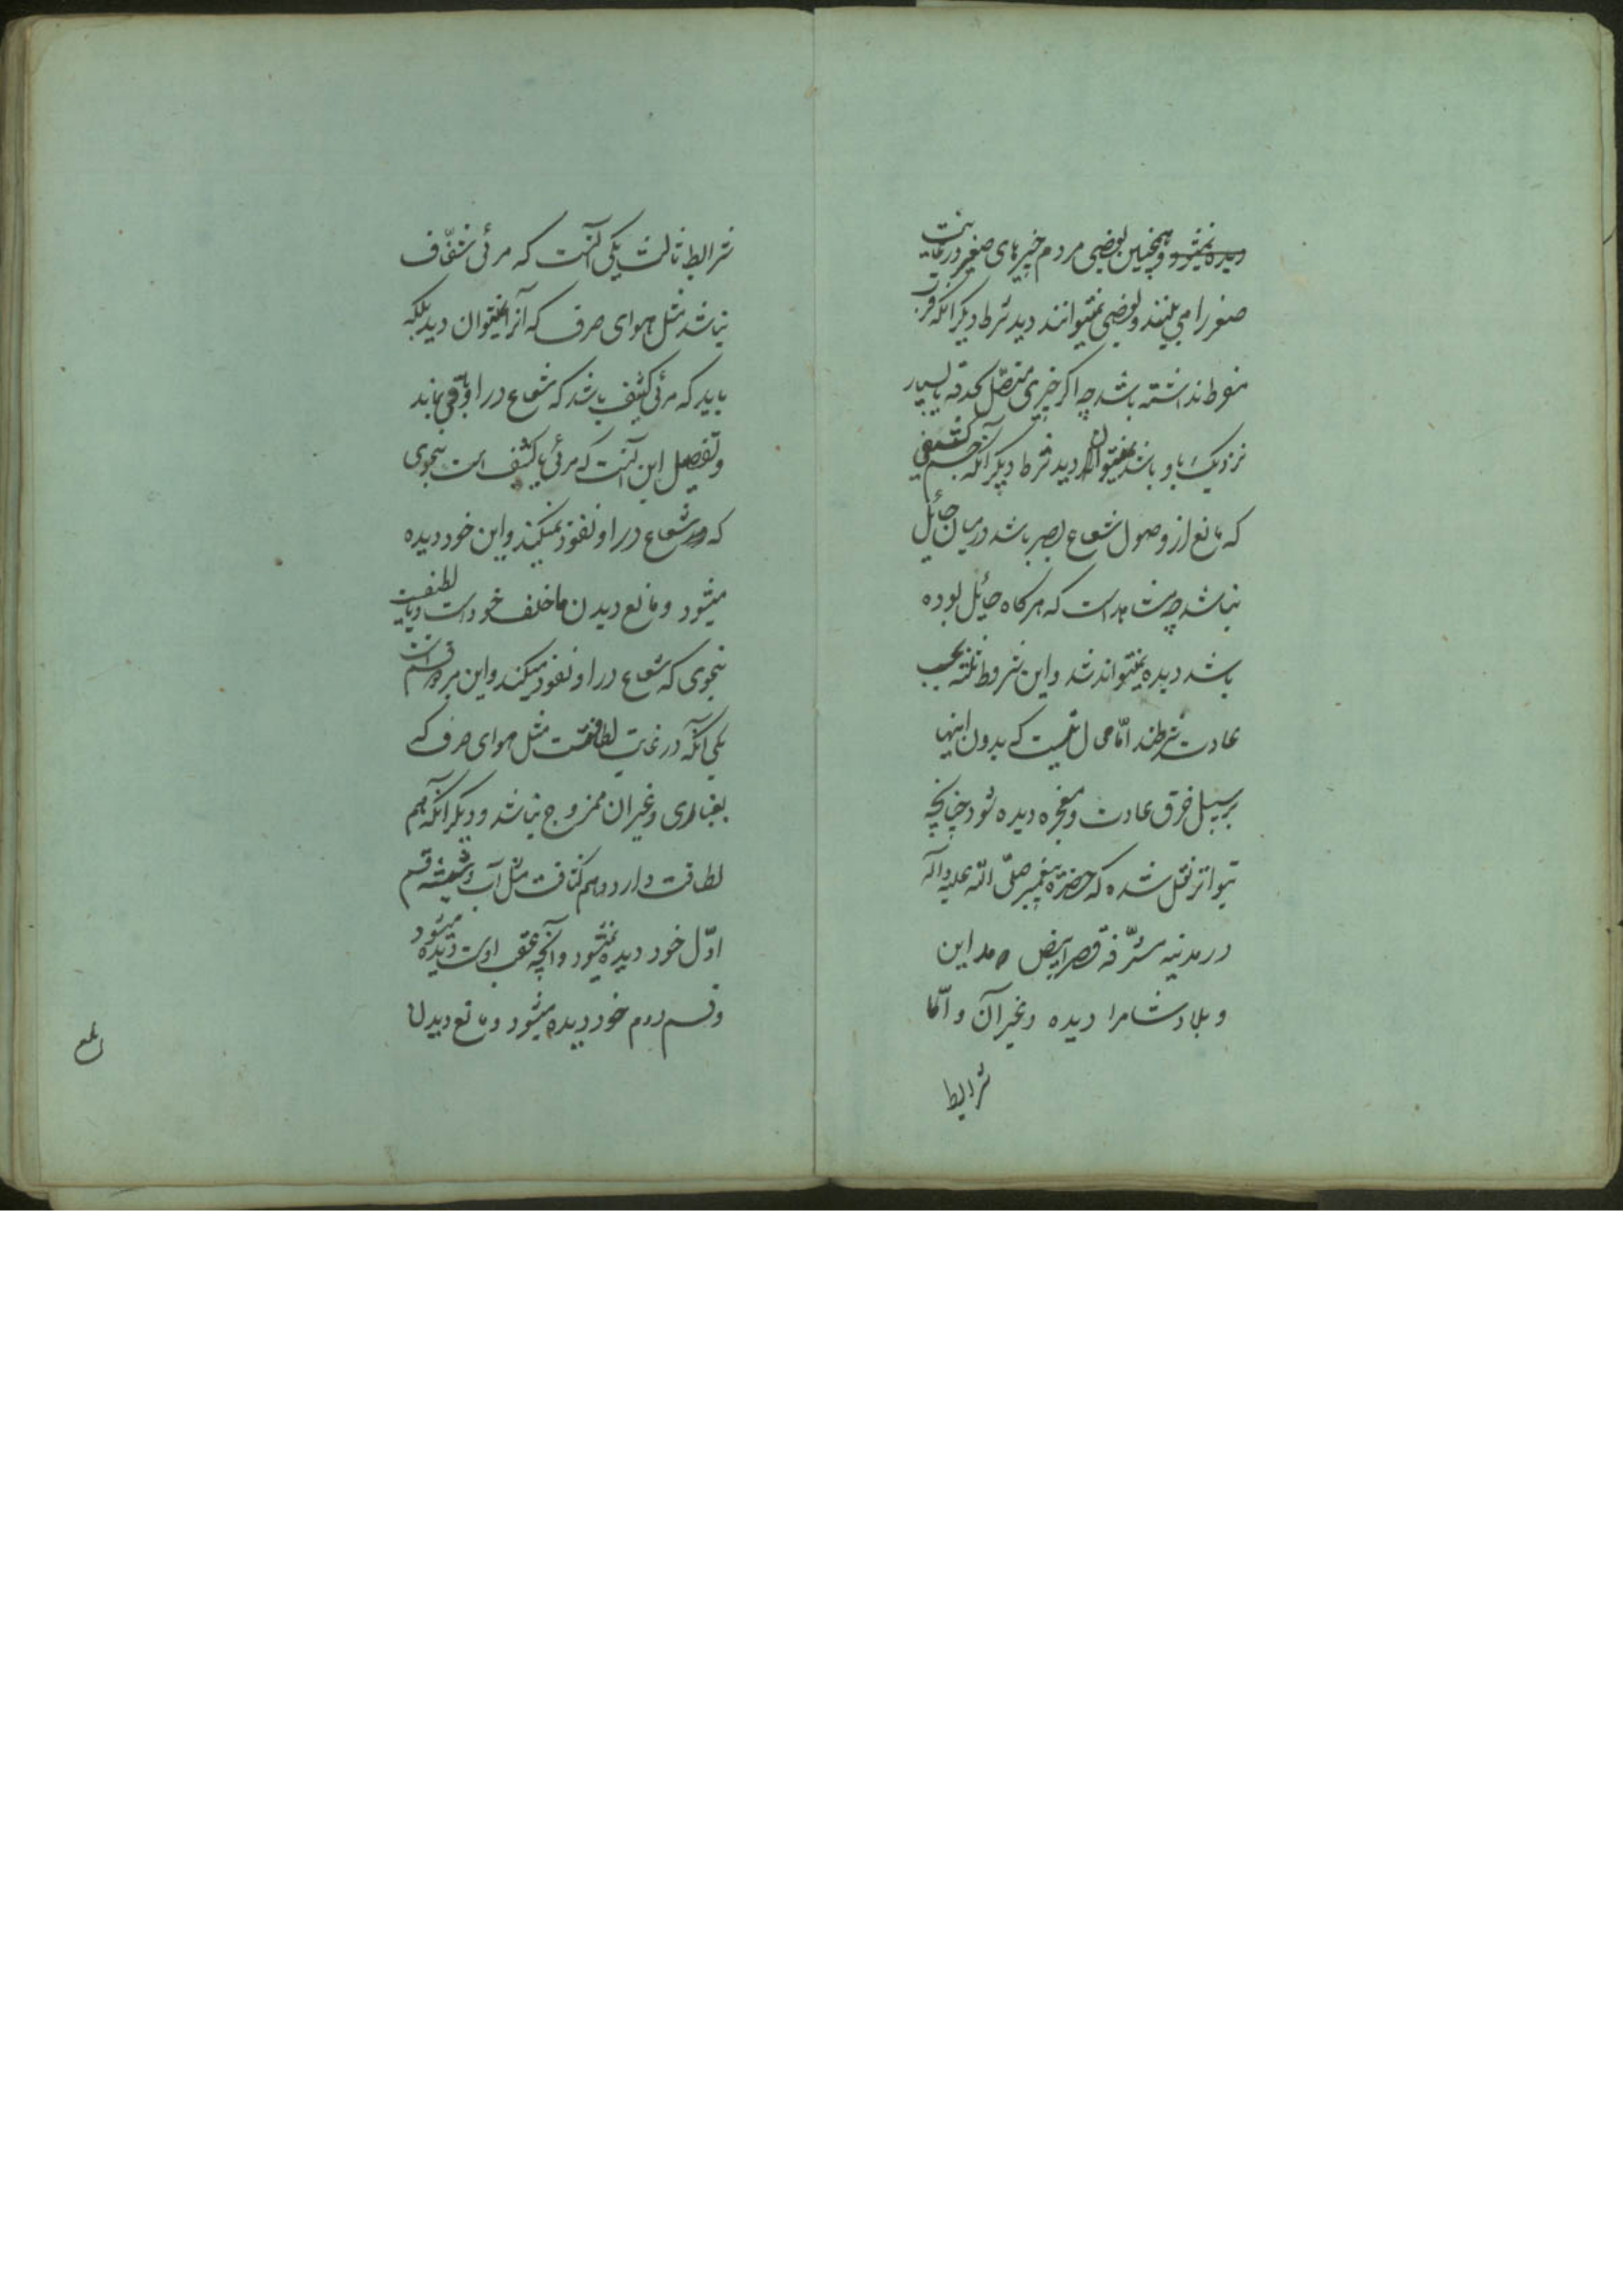 دیده نمیشود و همچنین بعضی مردم چیزهای صغیر در غایت
صغر را می بینند و بعضی نمیتوانند دید شرط دیگر آنکه قرب
مفرط نداشته باشد چه اگر چیزی متصل بحدقه یا بسیار
نزدیک باو باشد نمیتوان دید شرط دیگر آنکه جسم کثیفی
که مانع از وصول شعاع بصر باشد در میان حائل
نباشد چه مشاهد است که هر گاه حائل بوده
باشد دیده نمیتواند شد و این شروط ثلثه بحسب
عادت شرطند امّا محال نیست که بدون اینها
بر سبیل خرق عادت و معجزه دیده شود چنانچه
بتواتر نقل شده که حضرة پیغمبر صلّی الله علیه و آله
در مدینه مشرّفه قصر ابیض مداین
و بلاد شامرا دیده و غیر آن و امّا
شرایط
شرایط ثالث یکی آنست که مرئی شفّاف
نباشد مثل هوای صرف که آنرا نمیتوان دید بلکه
باید که مرئی کثیف باشد که شعاع در او باقی بماند
و تفصیل این آنست که مرئی یا کثیف است بنحوی
که شعاع در او نفوذ نمیکند و این خود دیده
میشود و مانع دیدن ماخلف خود است و یا لطیفست
بنحوی که شعاع در او نفوذ میکند و این بر دو قسم است
یکی آنکه در غایت لطافتست مثل هوای صرف که
بغباری و غیر آن ممزوج نباشد و دیگر آنکه هم
لطافت دارد و هم کثافت مثل آب و شیشه قسم
اوّل خود دیده نمیشود و آنچه عقب اوست دیده میشود
و قسم دوم خود دیده میشود و مانع دیدن